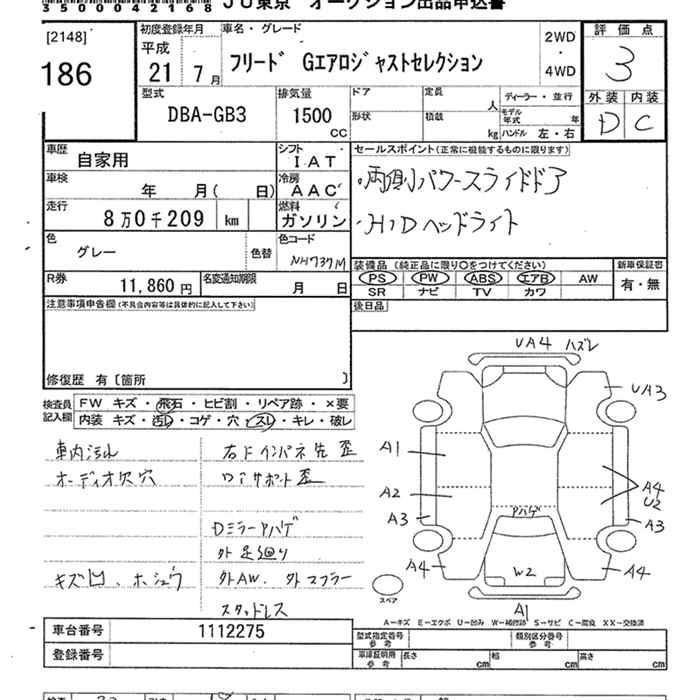 350004 2168 JU東京 オークション出品申込書
[2148]
186
初度登録年月 車名・グレード
平成 21年 7月
フリード Gエアロジャストセレクション
2WD
・
4WD
評価点
3
外装 内装
D C
型式
DBA-GB3
排気量
1500
CC
ドア 定員 人
形状 積載 kg
ディーラー・並行
モデル年式 年
ハンドル 左・右
車歴
自家用
シフト
IAT
車検
年 月( 日)
冷房
AAC
走行
8万0千209 km
燃料
ガソリン
色
グレー
色替
色コード
NH737M
R券
11,860円
名変通知期限
月 日
セールスポイント(正常に機能するものに限ります)
・両側パワースライドドア
・HIDヘッドライト
装備品 (純正品に限り○をつけてください)
PS PW ABS エアB AW
SR ナビ TV カワ
新車保証書
有・無
後日品
注意事項申告欄(不具合内容等は具体的に記入して下さい)
修復歴 有〔箇所 〕
検査員記入欄
FW キズ・飛石・ヒビ割・リペア跡・×要
内装 キズ・汚れ・コゲ・穴・スレ・キレ・破レ
車内汚れ
オーディオ穴穴
キズ凹、ホシュウ
右Fインパネ先歪
ロアサポート歪
Dミラーアハゲ
外足廻り
外AW、外マフラー
スタッドレス
UA4 ハズレ
UA3
A1
A2
A3
A4
A4
U2
A3
A4
アハゲ
W2
A1
スペア
A-キズ E-エクボ U-凹み W-補修跡 S-サビ C-腐食 XX-交換済
車台番号
1112275
登録番号
型式指定番号 参考
類別区分番号 参考
車庫証明用 参考
長さ cm 幅 cm 高さ cm